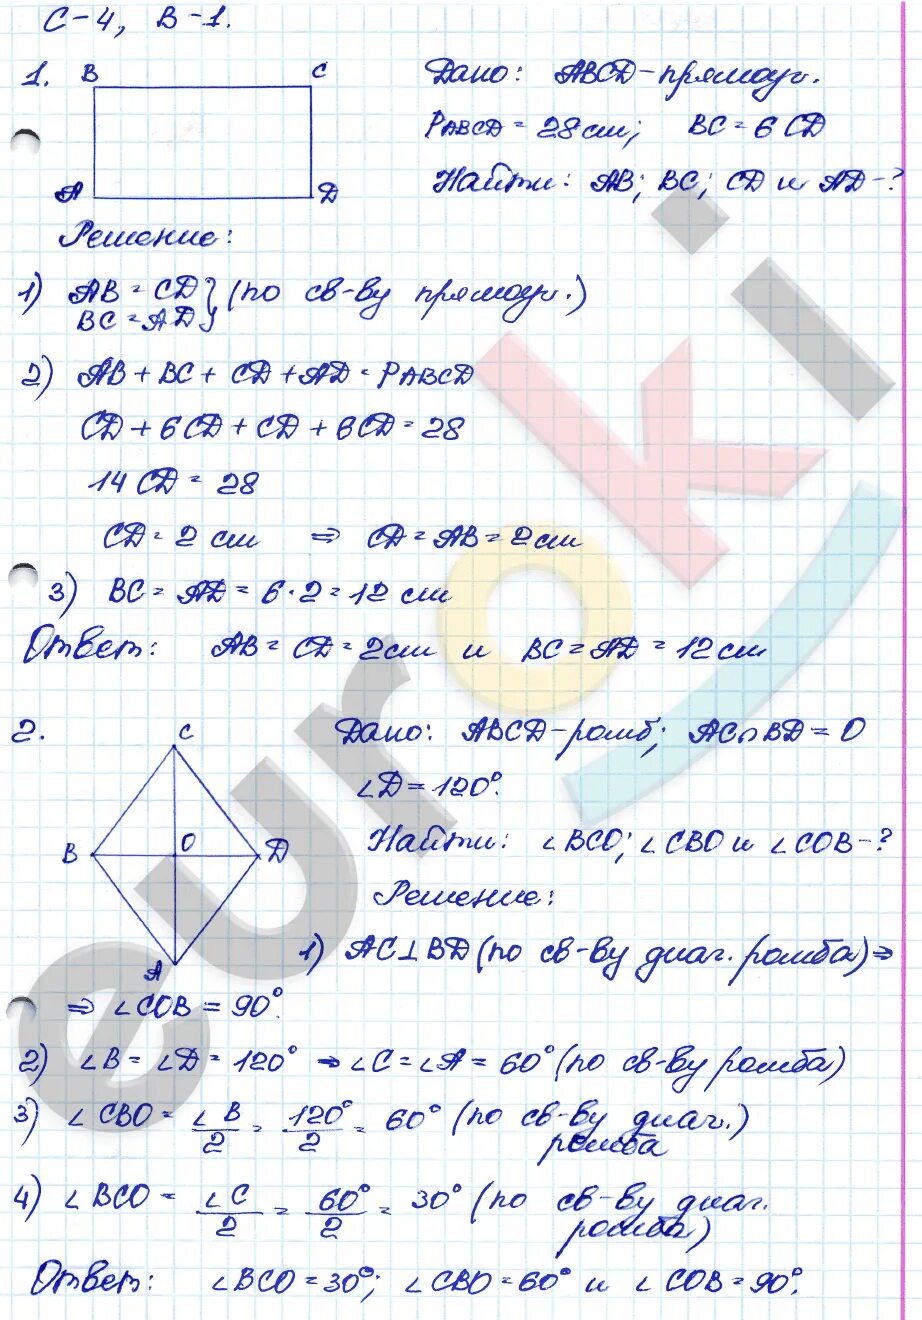 С-4, В-1.
1. B C
A D
Дано: ABCD-прямоуг.
PABCD = 28 см; BC = 6 CD
Найти: AB; BC; CD и AD-?
Решение:
1) AB = CD } (по св-ву прямоуг.)
BC = AD
2) AB + BC + CD + AD = PABCD
CD + 6CD + CD + 6CD = 28
14 CD = 28
CD = 2 см ⇒ CD = AB = 2 см
3) BC = AD = 6 · 2 = 12 см
Ответ: AB = CD = 2 см и BC = AD = 12 см
2. C
B O D
A
Дано: ABCD-ромб; AC∩BD = O
∠D = 120°.
Найти: ∠BCO; ∠CBO и ∠COB-?
Решение:
1) AC⊥BD (по св-ву диаг. ромба) ⇒
⇒ ∠COB = 90°.
2) ∠B = ∠D = 120° ⇒ ∠C = ∠A = 60° (по св-ву ромба)
3) ∠CBO = ∠B/2 = 120°/2 = 60° (по св-ву диаг.)
ромба
4) ∠BCO = ∠C/2 = 60°/2 = 30° (по св-ву диаг.
ромба)
Ответ: ∠BCO = 30°; ∠CBO = 60° и ∠COB = 90°.
euroki